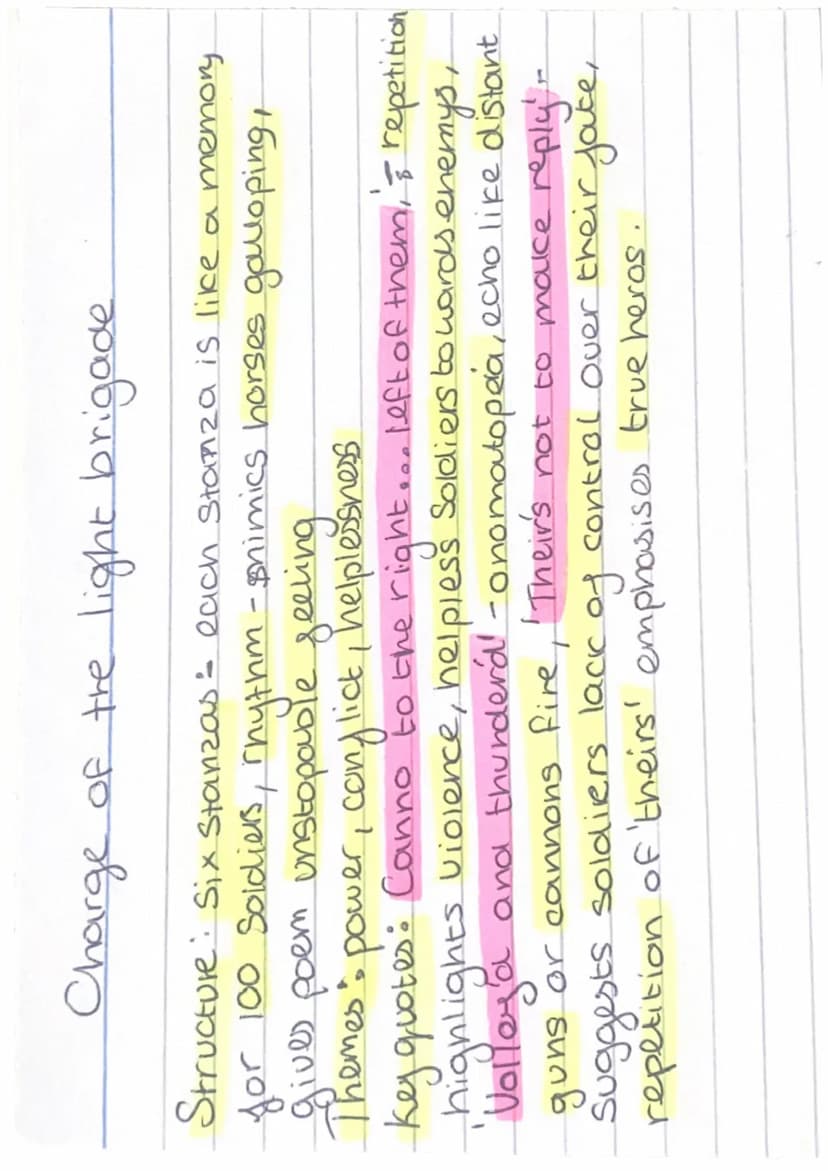 Charge of the light brigade
Structure: Six Stanzas:- each Stanza is like a memory
for 100 Soldiers, rhythm - mimics horses galloping,
gives poem unstopable feeling
Themes: power, conflict, helplessness
key quotes: 'Canno to the right... left of them,' - repetition
highlights violence, helpless Soldiers towards enemys,
'Volley'd and thunder'd' - onomatopeia, echo like distant
guns or cannons fire, 'Their's not to make reply' -
Suggests soldiers lack of control over their fate,
repetition of 'theirs' emphasises true heros.